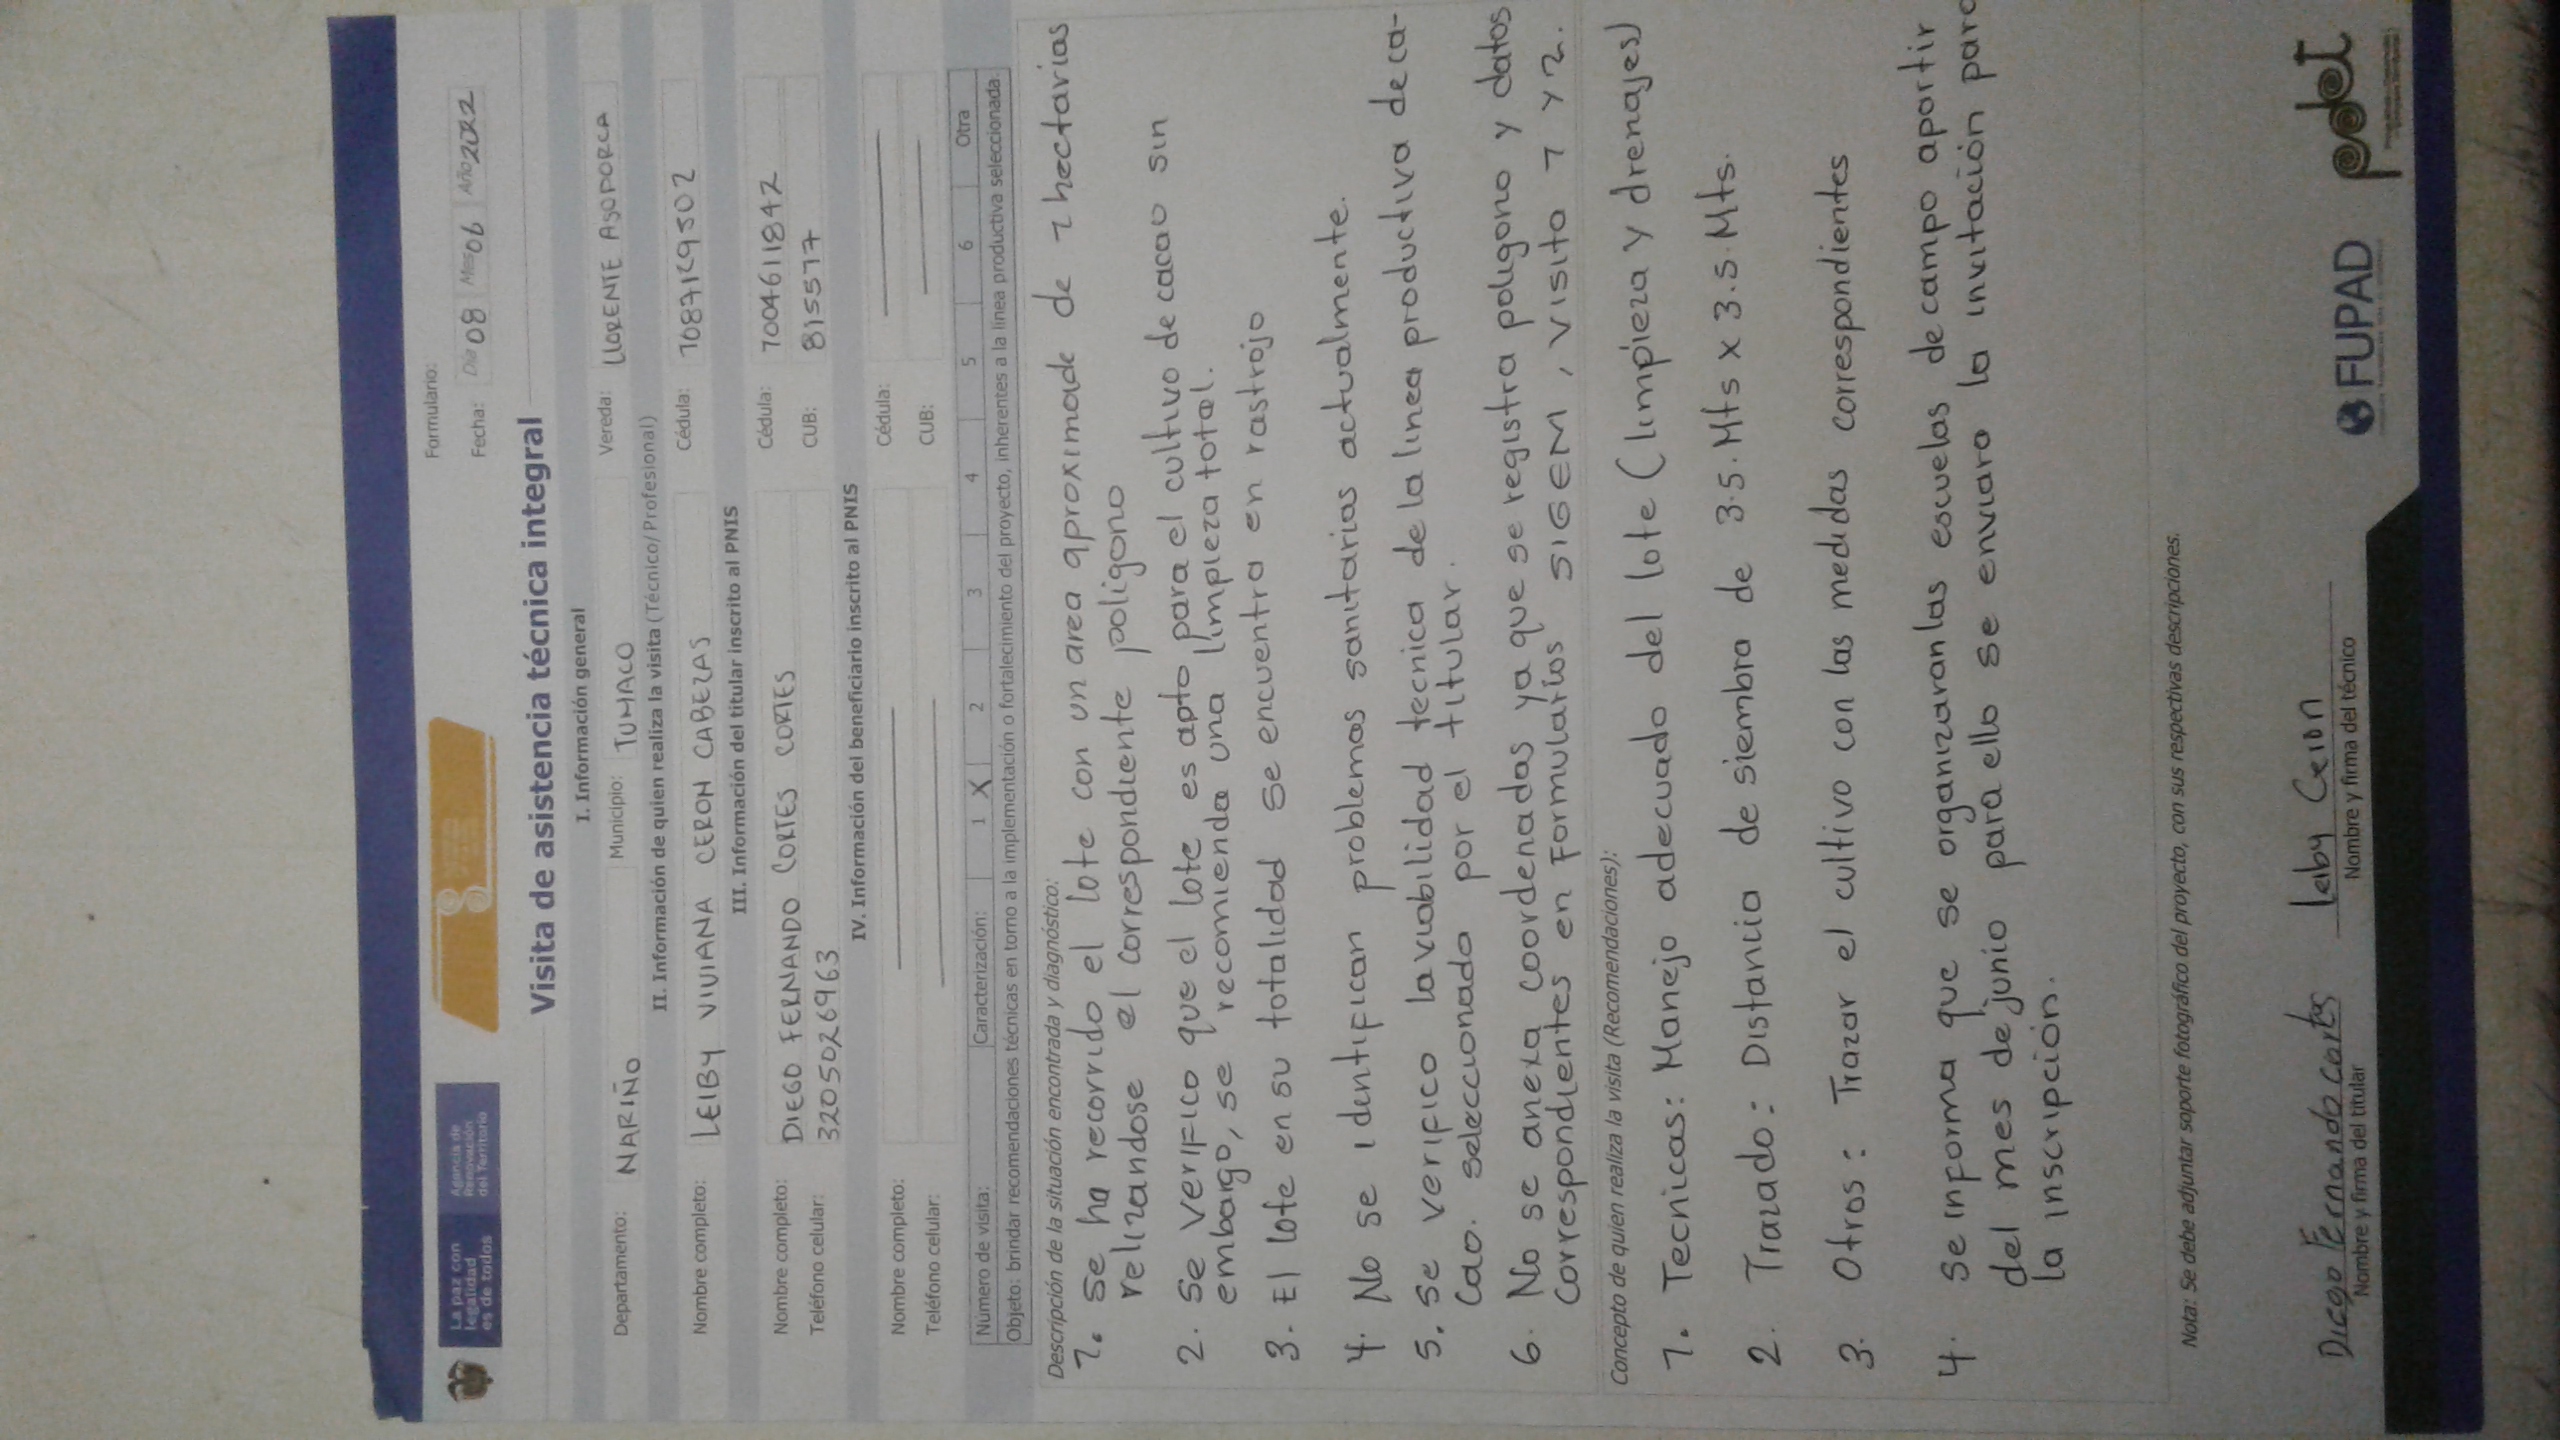 La paz con
legalidad
es de todos
Agencia de
Renovación
del Territorio
Formulario:
Fecha: Día 08 Mes 06 Año 2022
Visita de asistencia técnica integral
I. Información general
Departamento: NARIÑO Municipio: TUMACO Vereda: LLORENTE ASOPORCA
II. Información de quien realiza la visita (Técnico/Profesional)
Nombre completo: LEIBY VIVIANA CERON CABEZAS Cédula: 1087129502
III. Información del titular inscrito al PNIS
Nombre completo: DIEGO FERNANDO CORTES CORTES Cédula: 1004611842
Teléfono celular: 3205026963 CUB: 815577
IV. Información del beneficiario inscrito al PNIS
Nombre completo: Cédula:
Teléfono celular: CUB:
Número de visita: Caracterización: 1 X 2 3 4 5 6 Otra
Objeto: brindar recomendaciones técnicas en torno a la implementación o fortalecimiento del proyecto, inherentes a la línea productiva seleccionada.
Descripción de la situación encontrada y diagnóstico:
1. se ha recorrido el lote con un area aproximade de 1 hectarias
relizandose el correspondiente poligono
2. se verifico que el lote es apto para el cultivo de cacao sin
embargo, se recomienda una limpieza total.
3. El lote en su totalidad se encuentra en rastrojo
4. No se identifican problemas sanitarios actualmente.
5. se verifico la viabilidad tecnica de la linea productiva de ca-
cao. seleccionada por el titular.
6. No se anexa coordenadas ya que se registra poligono y datos
correspondientes en Formularios SIGEM, visita 1 y 2.
Concepto de quien realiza la visita (Recomendaciones):
1. Tecnicas: Manejo adecuado del lote (limpieza y drenajes)
2. Trazado: Distancia de siembra de 3.5.Mts x 3.5.Mts.
3. Otros: Trazar el cultivo con las medidas correspondientes
4. se informa que se organizaran las escuelas de campo apartir
del mes de junio para ello se enviara la invitación para
la inscripción.
Nota: Se debe adjuntar soporte fotográfico del proyecto, con sus respectivas descripciones.
Diego Fernando Cortes
Nombre y firma del titular
Leiby Ceron
Nombre y firma del técnico
FUPAD
pdet